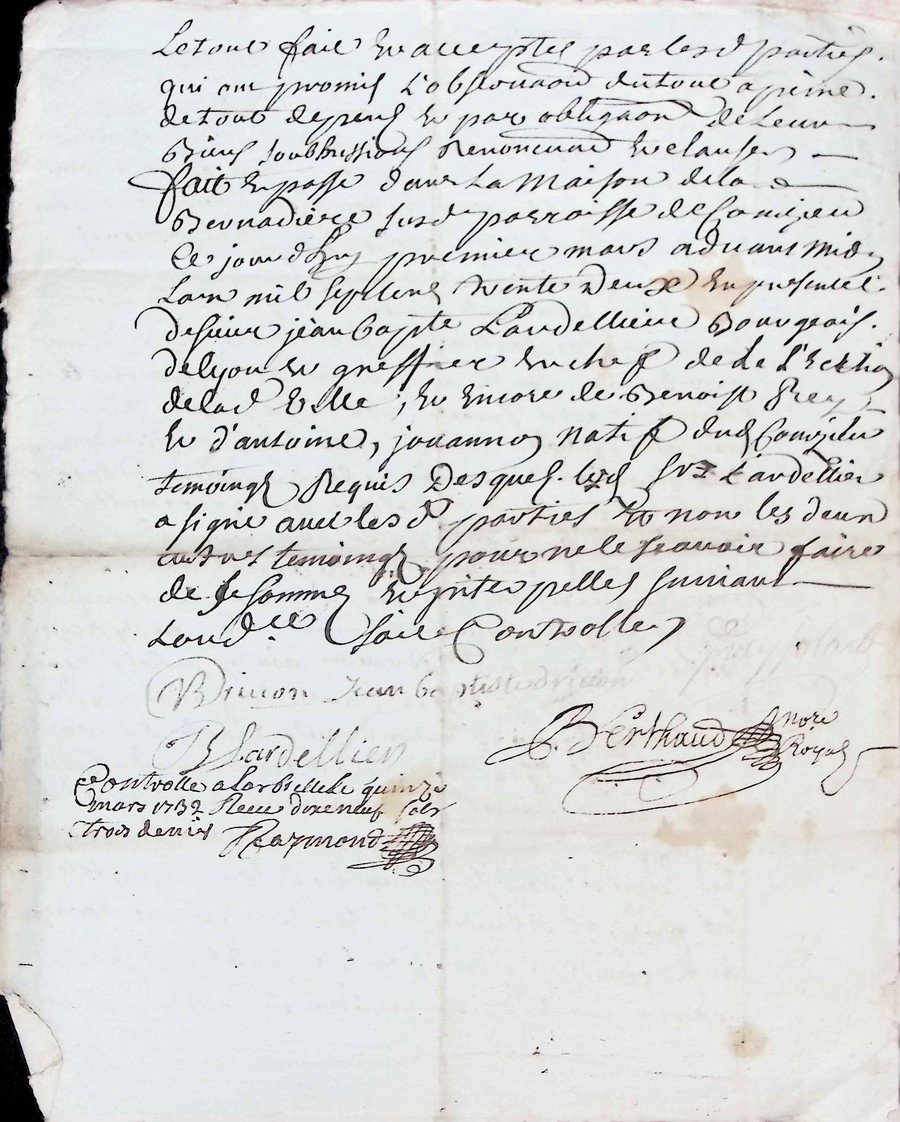 Letout fait et acceptés par lesd parties.
qui ont promis L'observation dutout a peine.
de tout depens et par obligaon de Leurs
Biens soubmissions Renonciaons et clauses
fait et passé dans La Maison dela
Bernadière susd parroisse de
Ce jourdhuy premier mars advant midy
Lan mil sept cens trente deux En presence
desieur jean bapte Lardellier Bourgeois.
delyon et greffier en chef de de l'Election
delad Ville, et encore de Benoist Rey
et d'antoine, jouannon natif dud
temoings Requis Desquels led Sr Lardellier
a signé avec lesd parties et non les deux
autres temoings pour ne le scavoir faire
de ce sommés et interpellés suivant
Lordce Soit Controllé
Drivon Jean baptiste drivon
B Lardellier
BErthaud Nore
Royal
Controllé a Larbresle le quinze
mars 1732 Receu dixneuf sols
trois deniers Raymond